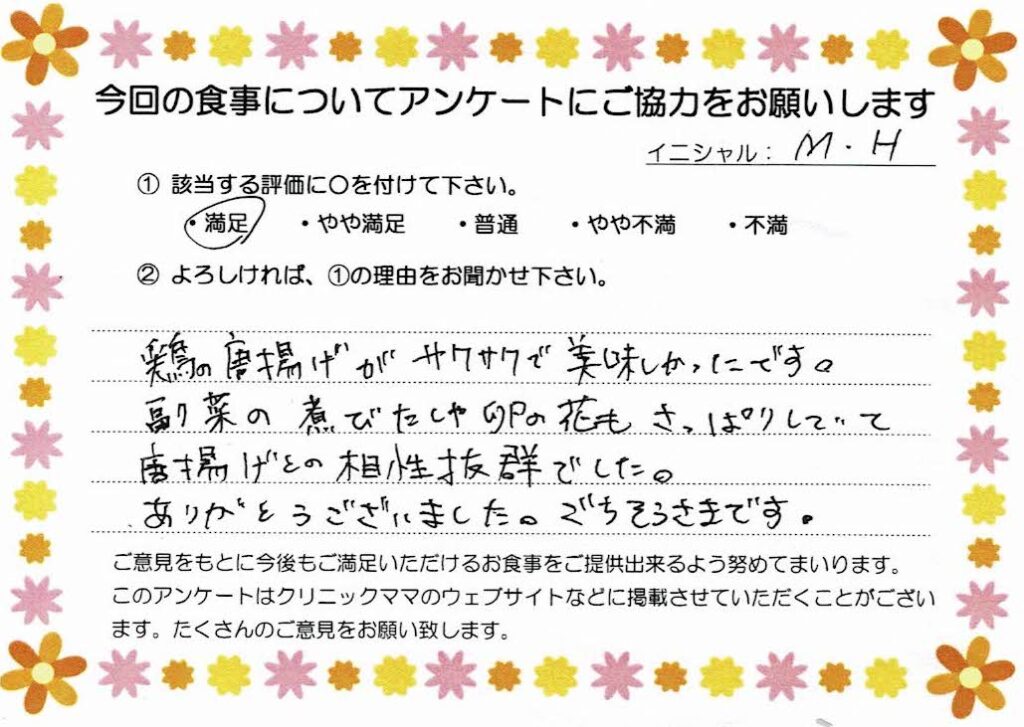 今回の食事についてアンケートにご協力をお願いします
イニシャル: M・H
① 該当する評価に〇を付けて下さい。
・満足 ・やや満足 ・普通 ・やや不満 ・不満
② よろしければ、①の理由をお聞かせ下さい。
鶏の唐揚げがサクサクで美味しかったです。
副菜の煮びたしや卯の花もさっぱりしていて
唐揚げとの相性抜群でした。
ありがとうございました。ごちそうさまです。
ご意見をもとに今後もご満足いただけるお食事をご提供出来るよう努めてまいります。
このアンケートはクリニックママのウェブサイトなどに掲載させていただくことがござい
ます。たくさんのご意見をお願い致します。